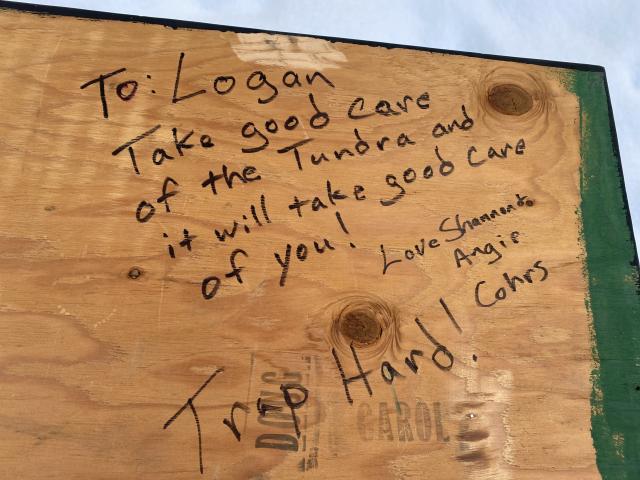 To: Logan
Take good care
of the Tundra and
it will take good care
of you!
Love Shannon &
Angie
Cohrs
Trip Hard!
DOUG
CAROL